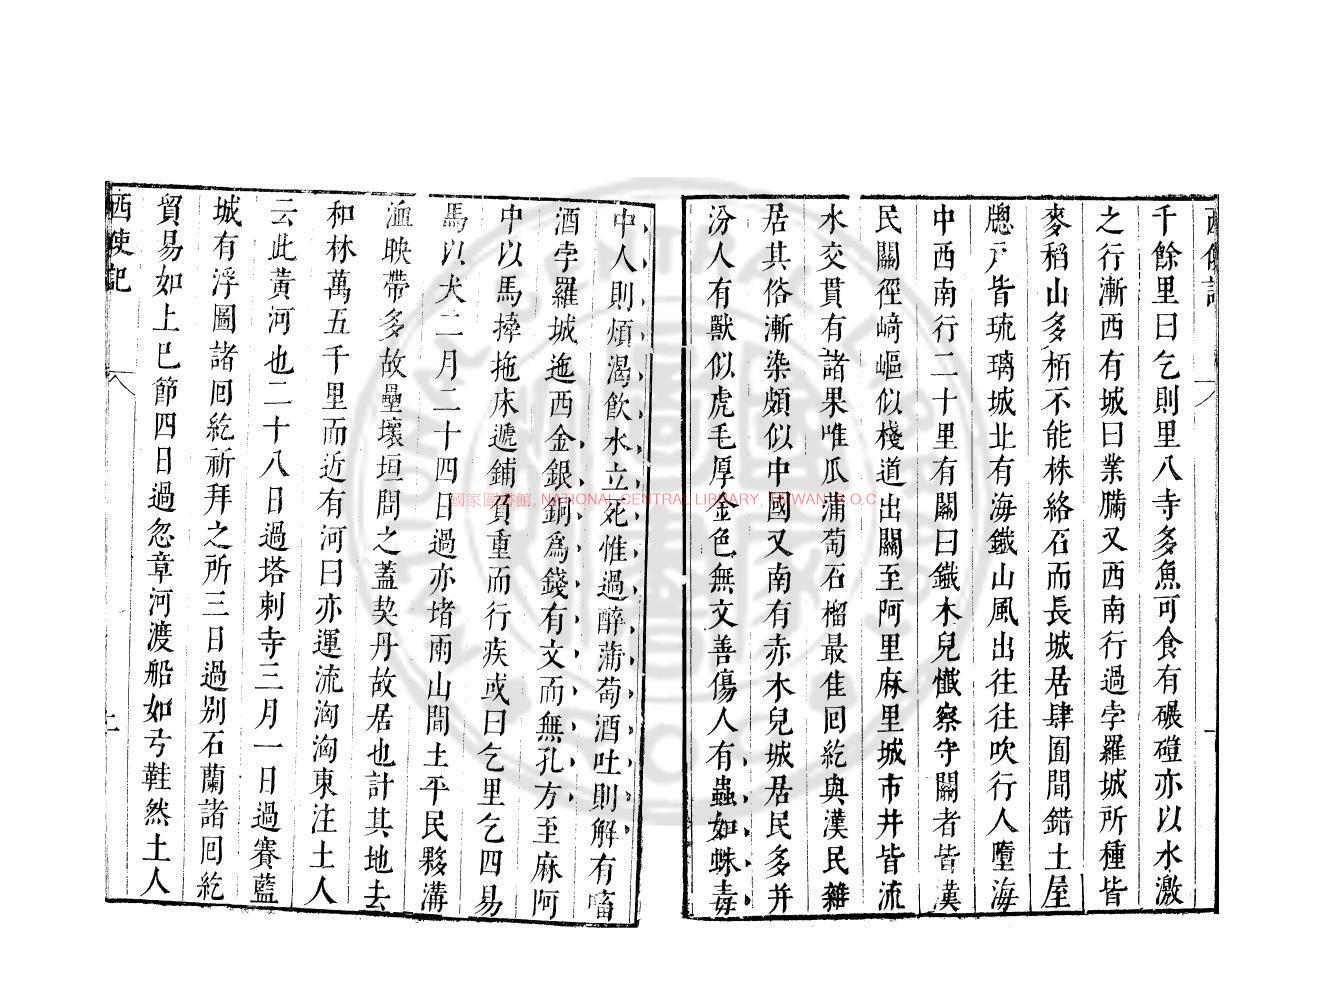 西使記
千餘里曰乞則里八寺多魚可食有碾磑亦以水激
之行漸西有城曰業瞞又西南行過孛羅城所種皆
麥稻山多栢不能株絡石而長城居肆囿間錯土屋
牕戶皆琉璃城北有海鐵山風出往往吹行人墮海
中西南行二十里有關曰鐵木兒懺察守關者皆漢
民關徑崎嶇似棧道出關至阿里麻里城市井皆流
水交貫有諸果唯瓜蒲萄石榴最佳囘紇與漢民雜
居其俗漸染頗似中國又南有赤木兒城居民多并
汾人有獸似虎毛厚金色無文善傷人有蟲如蛛毒
中人則煩渴飲水立死惟過醉蒲萄酒吐則解有㗜
酒孛羅城迤西金銀銅爲錢有文而無孔方至麻阿
中以馬擡拖床遞鋪負重而行疾或曰乞里乞四易
馬以犬二月二十四日過亦堵兩山間土平民夥溝
洫映帶多故壘壞垣問之蓋契丹故居也計其地去
和林萬五千里而近有河曰亦運流洶洶東注土人
云此黃河也二十八日過塔剌寺三月一日過賽藍
城有浮圖諸囘紇祈拜之所三日過別石蘭諸囘紇
貿易如上巳節四日過忽章河渡船如弓鞋然土人
西使記
國家圖書館, NATIONAL CENTRAL LIBRARY, TAIWAN, R.O.C